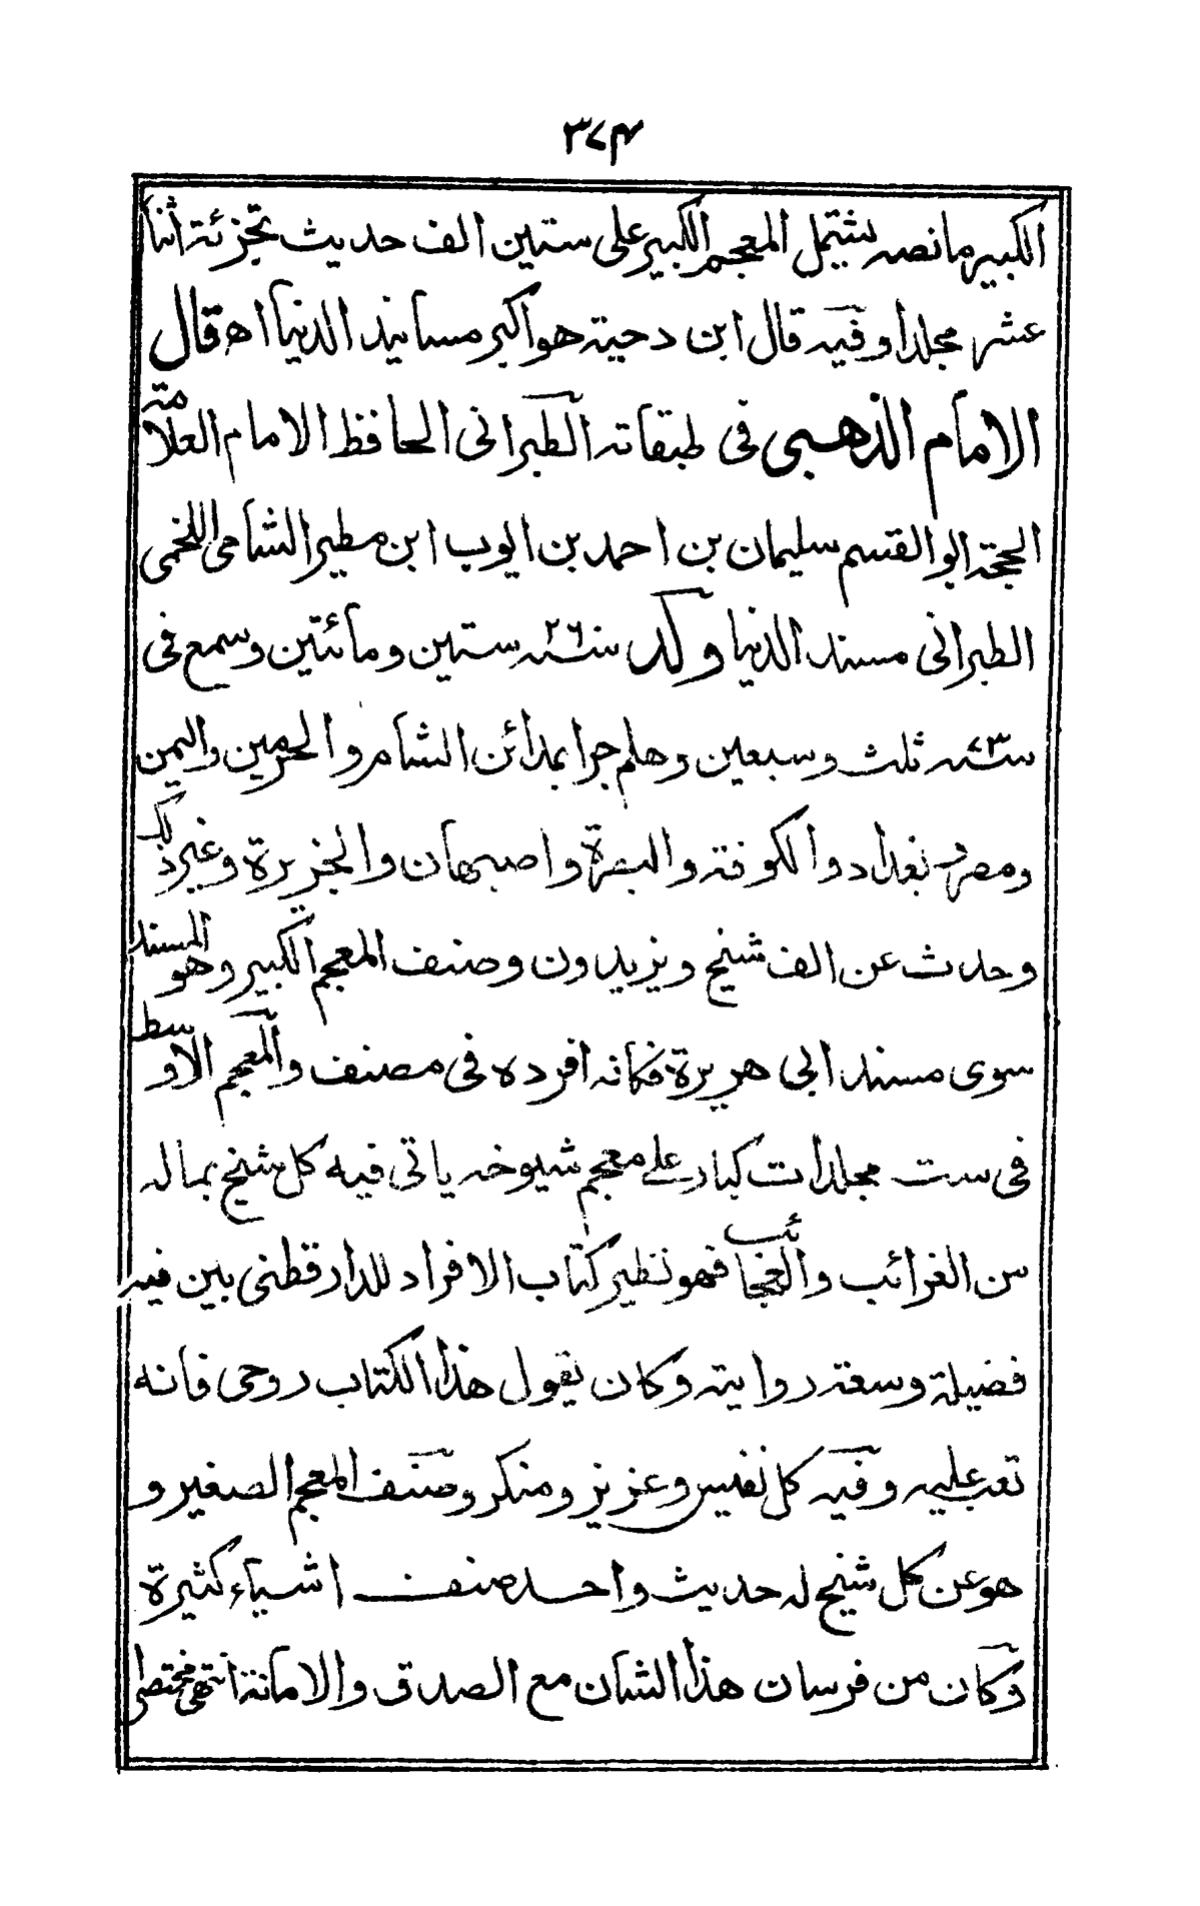 ٣٧٤
الكبير مانصه يشتمل المعجم الكبير على ستين الف حديث تجزئته أثنا
عشر مجلدا وفيه قال ابن دحية هو اكبر مسانيد الدنيا اه قال
الامام الذهبى فى طبقاته الطبرانى الحافظ الامام العلامة
الحجة ابو القسم سليمان بن احمد بن ايوب ابن مطير الشامى اللخمى
الطبرانى مسند الدنيا ولد سنة ٢٦٠ ستين ومائتين وسمع فى
سنة ٧٣ ثلث وسبعين وهلم جرا بمدائن الشام والحرمين واليمن
ومصر وبغداد والكوفة والبصرة واصبهان والجزيرة وغير ذلك
وحدث عن الف شيخ ويزيدون وصنف المعجم الكبير وهو المسند
سوى مسند ابى هريرة فكانه افرده فى مصنف والمعجم الاوسط
فى ست مجلدات كبار على معجم شيوخه ياتى فيه كل شيخ بماله
من الغرائب والعجائب فهو نظير كتاب الافراد للدارقطنى بين فيه
فضيلة وسعة روايته وكان يقول هذا الكتاب روحى فانه
تعب عليه وفيه كل نفيس وعزيز ومنكر وصنف المعجم الصغير و
هو عن كل شيخ له حديث واحد صنف اشياء كثيرة
وكان من فرسان هذا الشان مع الصدق والامانة انتهى مختصرا